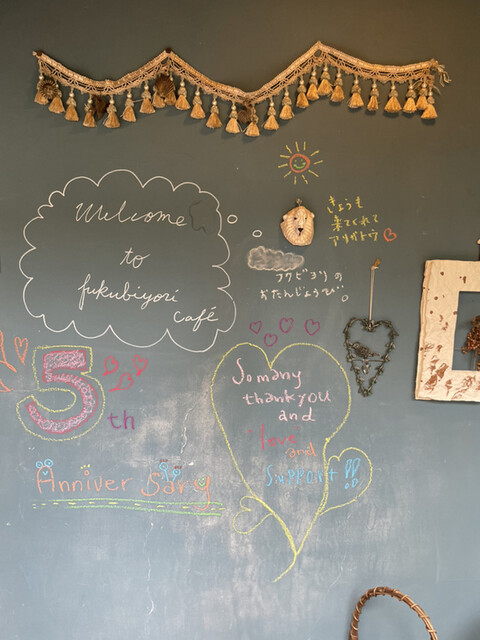 Welcome
to
fukubiyori
café
きょうも
来てくれて
アリガトウ
フクビヨリの
おたんじょうび。
5th
Anniversary
So many
thank you
and
love
and
support!!